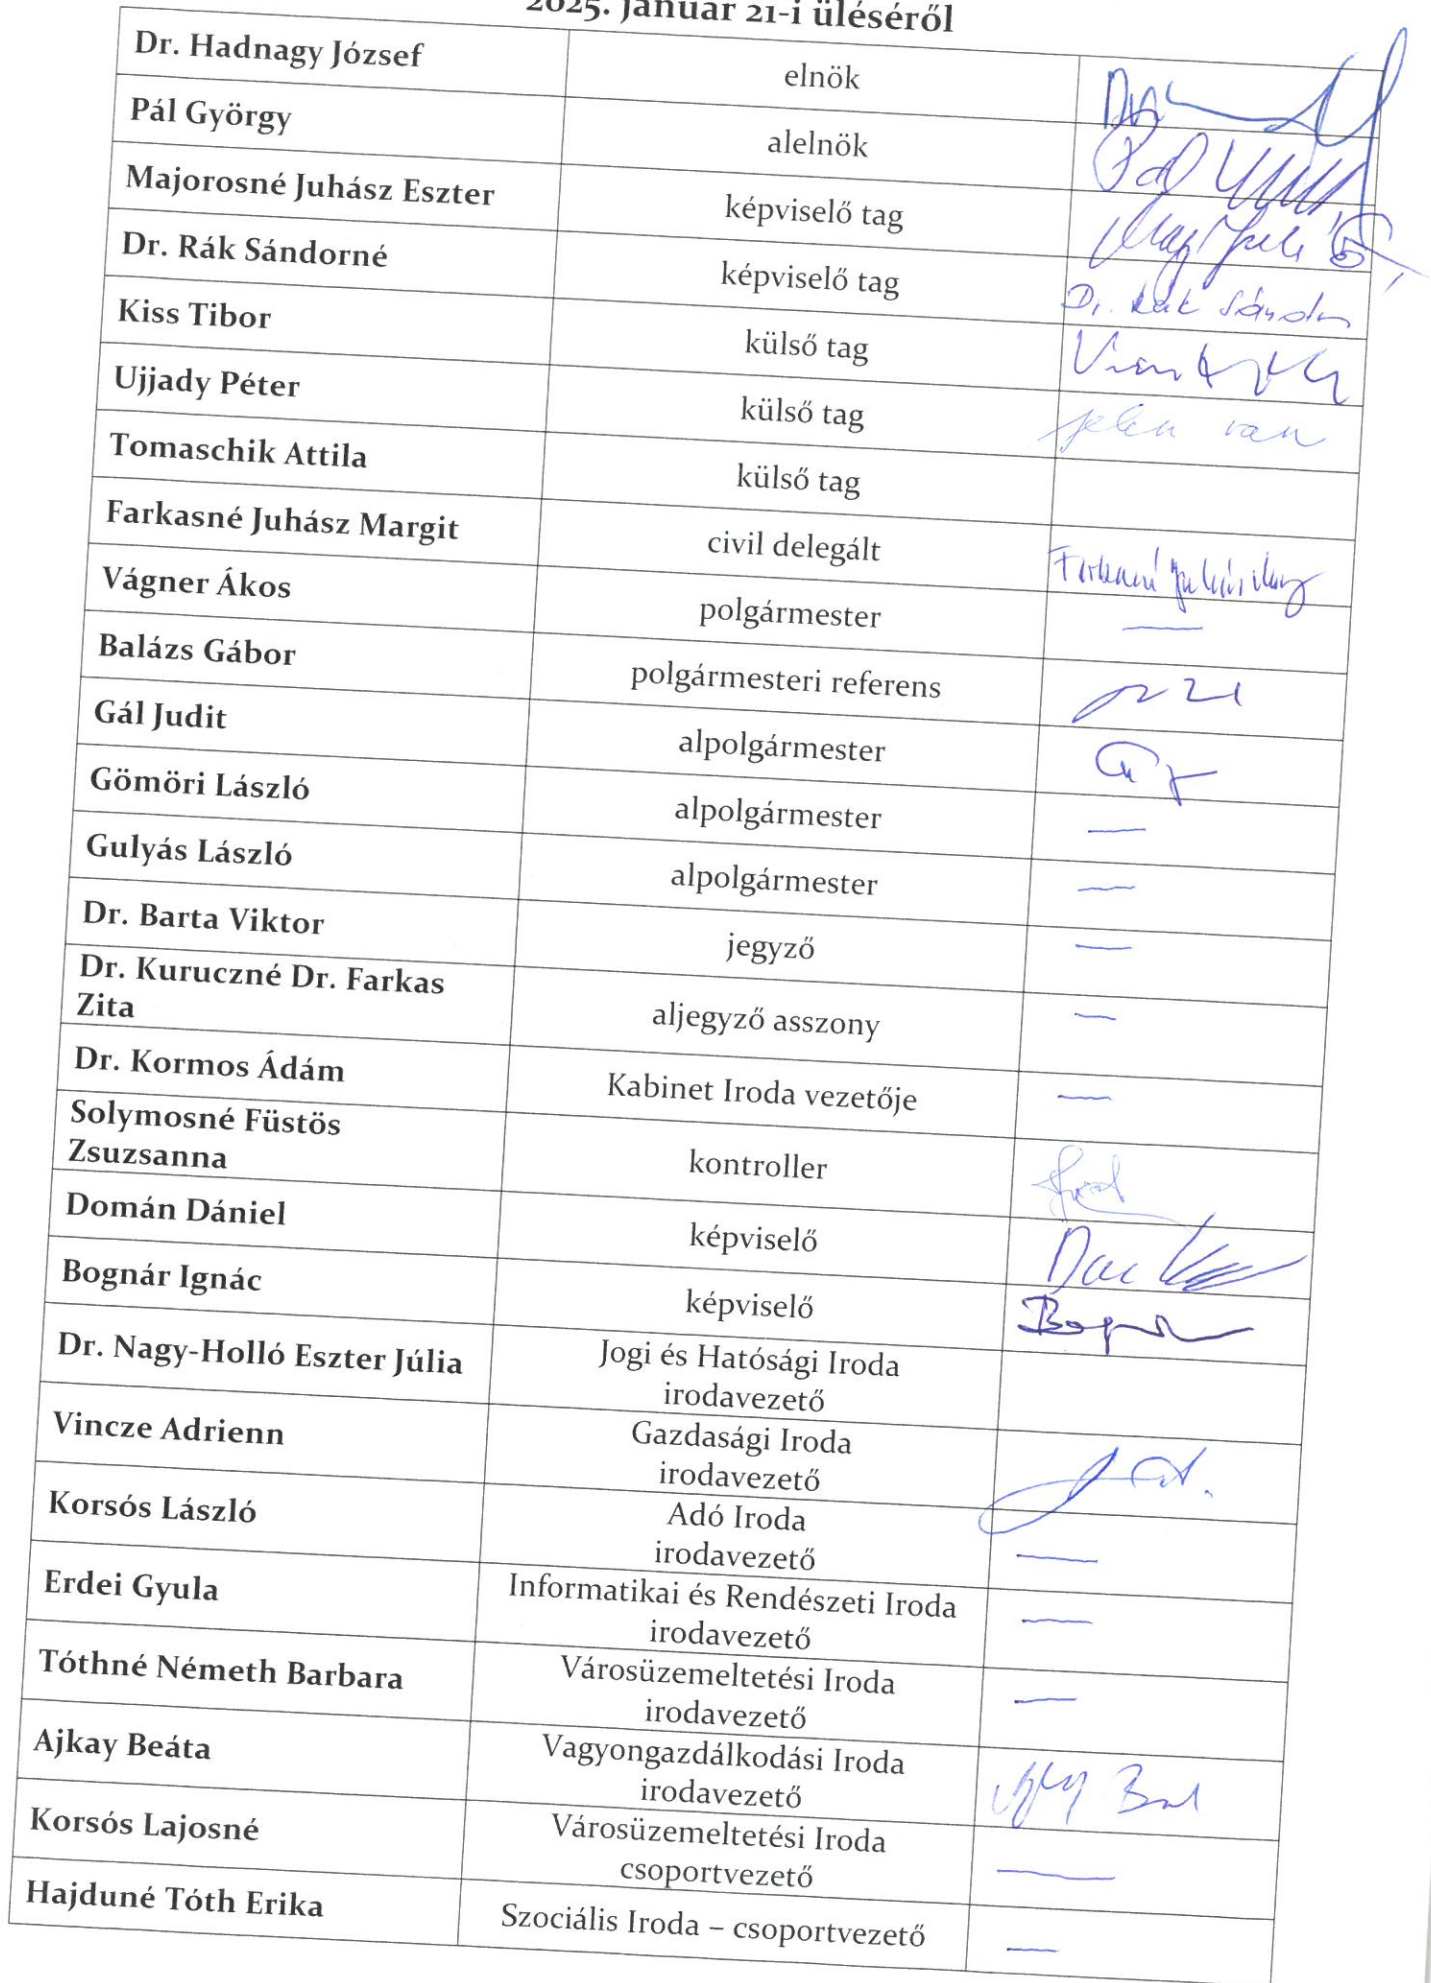 2025. január 21-i üléséről
Dr. Hadnagy József elnök
Pál György alelnök
Pál
Majorosné Juhász Eszter képviselő tag
Dr. Rák Sándorné képviselő tag
Dr. Rák Sándorné
Kiss Tibor külső tag
Ujjady Péter külső tag
jelen van
Tomaschik Attila külső tag
Farkasné Juhász Margit civil delegált
Farkasné Juhász Marg
Vágner Ákos polgármester —
Balázs Gábor polgármesteri referens
Gál Judit alpolgármester
Gömöri László alpolgármester —
Gulyás László alpolgármester —
Dr. Barta Viktor jegyző —
Dr. Kuruczné Dr. Farkas
Zita aljegyző asszony —
Dr. Kormos Ádám Kabinet Iroda vezetője —
Solymosné Füstös
Zsuzsanna kontroller
Domán Dániel képviselő
Bognár Ignác képviselő
Dr. Nagy-Holló Eszter Júlia Jogi és Hatósági Iroda
irodavezető
Vincze Adrienn Gazdasági Iroda
irodavezető
Korsós László Adó Iroda
irodavezető —
Erdei Gyula Informatikai és Rendészeti Iroda
irodavezető —
Tóthné Németh Barbara Városüzemeltetési Iroda
irodavezető —
Ajkay Beáta Vagyongazdálkodási Iroda
irodavezető
Korsós Lajosné Városüzemeltetési Iroda
csoportvezető —
Hajduné Tóth Erika Szociális Iroda – csoportvezető —